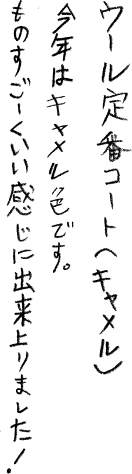 ウール定番コート(キャメル)
今年はキャメル色です。
ものすごーくいい感じに出来上りました!